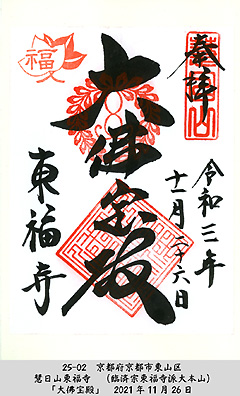 奉拝
令和三年
十一月二十六日
大佛宝殿
福
東福寺
25-02　京都府京都市東山区
慧日山東福寺　（臨済宗東福寺派大本山）
「大佛宝殿」　2021年11月26日